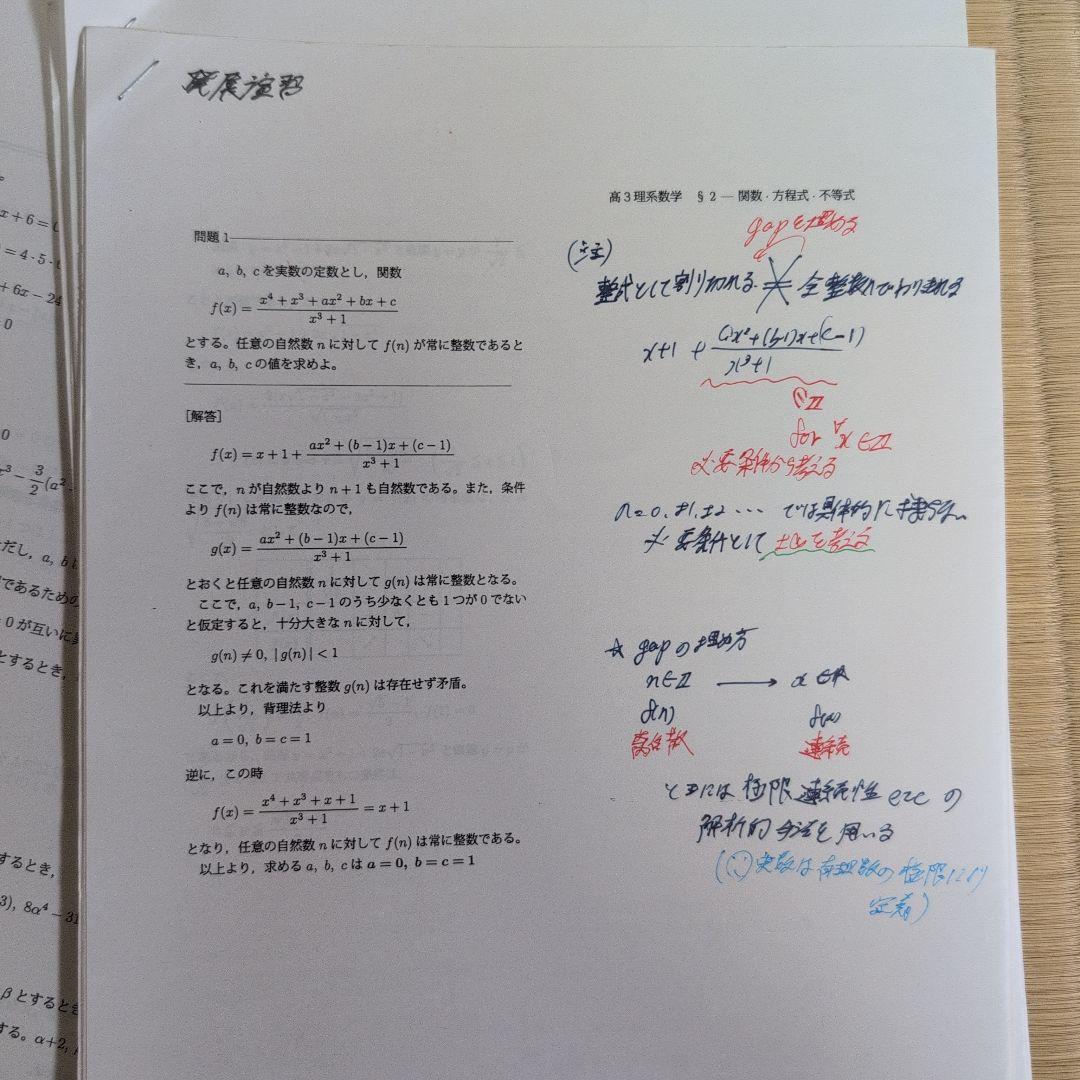 発展演習
高3理系数学 §2 — 関数・方程式・不等式
問題1
a, b, c を実数の定数とし，関数
f(x) = \frac{x^4 + x^3 + ax^2 + bx + c}{x^3 + 1}
とする。任意の自然数 n に対して f(n) が常に整数であると
き，a, b, c の値を求めよ。
[解答]
f(x) = x + 1 + \frac{ax^2 + (b − 1)x + (c − 1)}{x^3 + 1}
ここで，n が自然数より n + 1 も自然数である。また，条件
より f(n) は常に整数なので，
g(x) = \frac{ax^2 + (b − 1)x + (c − 1)}{x^3 + 1}
とおくと任意の自然数 n に対して g(n) は常に整数となる。
ここで，a, b−1, c−1 のうち少なくとも1つが0でない
と仮定すると，十分大きな n に対して，
g(n) ≠ 0, |g(n)| < 1
となる。これを満たす整数 g(n) は存在せず矛盾。
以上より，背理法より
a = 0, b = c = 1
逆に，この時
f(x) = \frac{x^4 + x^3 + x + 1}{x^3 + 1} = x + 1
となり，任意の自然数 n に対して f(n) は常に整数である。
以上より，求める a, b, c は a = 0, b = c = 1
gapを埋める
(注)
整式として割り切れる 全整数でわりきれる
x+1 + \frac{ax²+(b-1)x+(c-1)}{x³+1}
for ∀x ∈ ℤ
必要条件から考える
n=0, ±1, ±2 … では具体的に
必要条件として ±∞を考える
☆ gapの埋め方
n∈ℤ → x∈ℝ
f(n) f(x)
離散 連続
ときには 極限 連続性 etc の
解析的手法を用いる
(∵ 実数は有理数の極限により
定義)
x + 6 = 0
= 4・5・
+ 6x − 24
= 0
x^3 − \frac{3}{2}(a^2
ただし，a, b
であるための
とするとき，
するとき，
3), 8α^4 − 31
β とするとき
する。α+2,